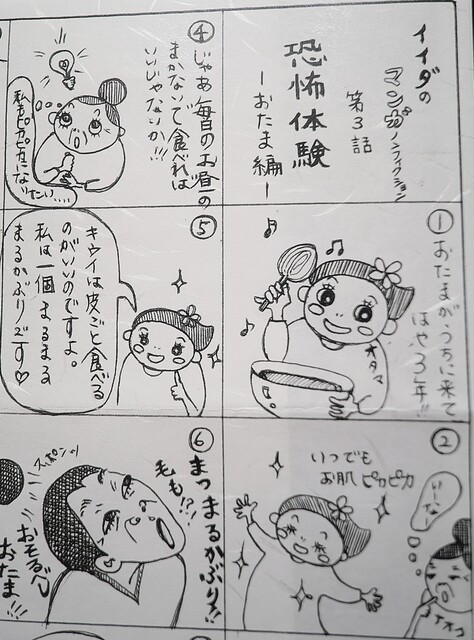 イイダの
マンガノンフィクション
第3話
恐怖体験
ーおたま編ー
①
おたまがうちに来て
はや3年!!
オタマ
②
いつでも
お肌ピカピカ
いーなー
④
じゃあ毎日のお昼の
まかないで食べれば
いいじゃないか!!!
私もピカピカになり
たい…
⑤
キウイは皮ごと食べる
のがいいのですよ。
私は一個まるまる
まるかぶりです♡
⑥
まっまるかぶり!!
毛も!?!
スッポンッ
おそるべし
おたま!!!